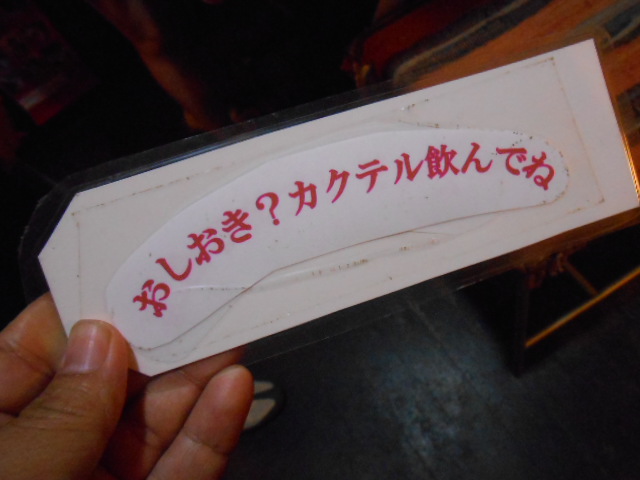 おしおき？カクテル飲んでね